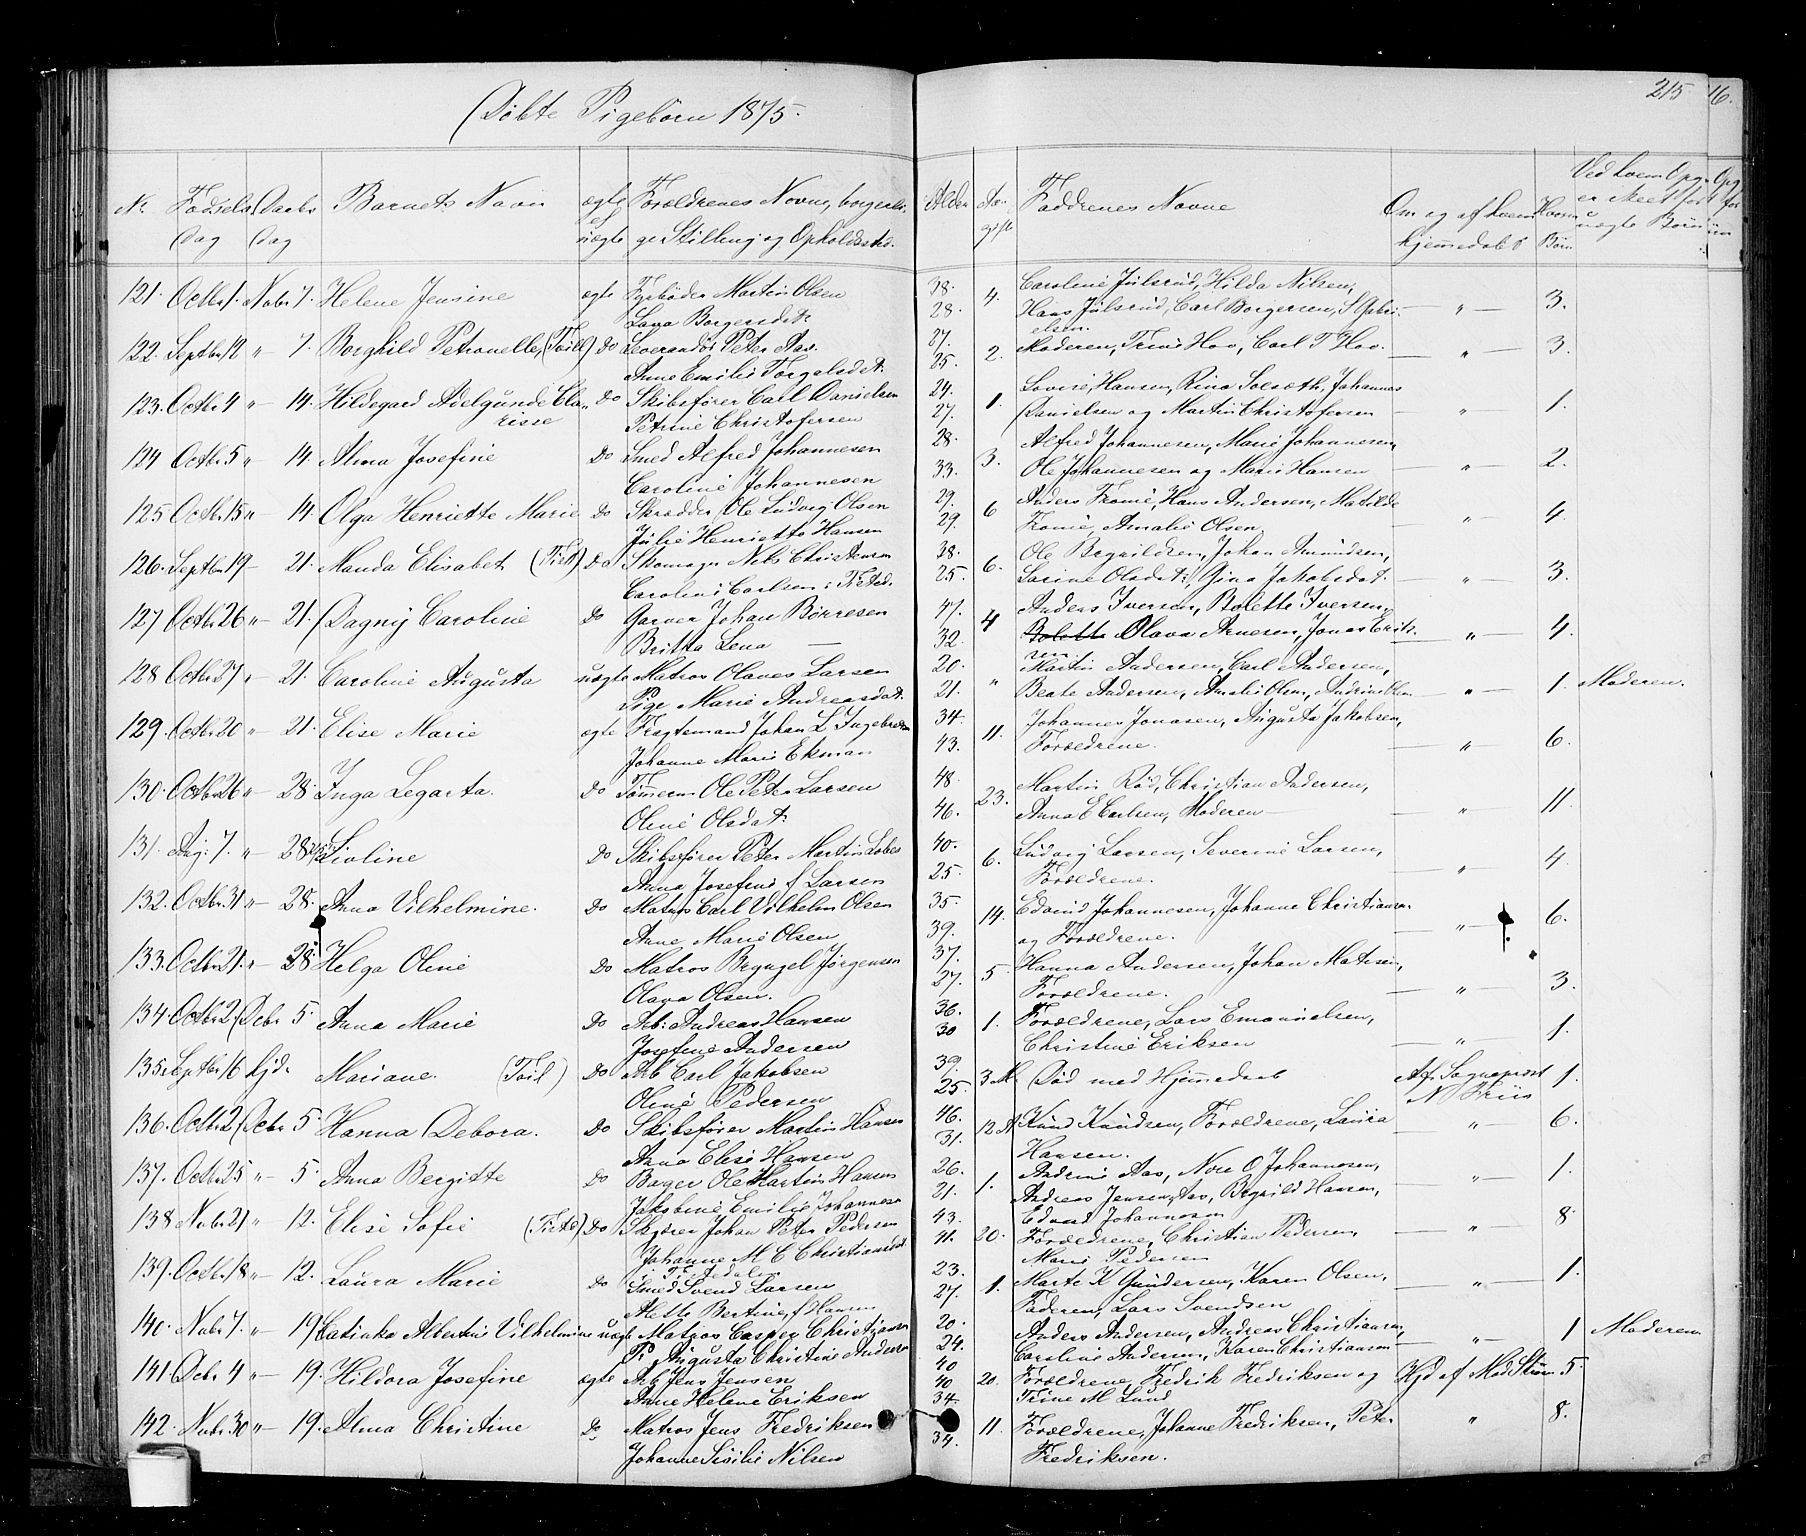 Døbte Pigebörn 1875.
215 16.
No Fødsels Dag Daabs Dag Barnets Navn ægte el uægte Forældrenes Navne, borgerli-ge Stilling og Opholdssted. Alder Faddrenes Navne Om og af hvem hjemmedøbt Ved hvem
121. Octbr 1. Nobr 7. Helene Jensine ægte Fyrbøder Martin Olsen 38. 4. Caroline Julsrud, Hilda Nilsen, 3.
Lava Borgersdt: 28. Hans Julsrud, Carl Borgersen,
122. Septbr 12 " 7. Borghild Petronelle, Do Leverandör Peter Aas. 27. 2. Moderen, Trine Hov, Carl T Hov. " 3.
Anne Emilie Torgelsdt. 25.
123. Octbr 4 " 14. Hildegard Adelgunde Cla-risse Do Skibsfører Carl Danielsen 24. 1. Lovise Hansen, Rina Solseth, Johannes
Petrine Christofersen 27. Danielsen og Martin Christofersen " 1.
124 Octbr 5 " 14 Alma Josefine Do Smed Alfred Johannesen 28. 3. Alfred Johannesen, Marie Johannesen,
Caroline Johannesen 33. Ole Johannesen og Marie Hansen " 2.
125 Octbr 15 " 14. Olga Henriette Marie Do Skrædder Ole Ludvig Olsen 29. 6 Anders Fromé, Hans Andersen, Matilde
Julie Henriette Hansen 29. Fromé, Amalie Olsen " 4.
126. Septbr 19 21. Manda Elisabet Do Skomagr Nils Christensen 38. 6. Ole Bryнildsen, Johan Amundsen,
Caroline Carlsen i 25. Sarine Olsdat:, Gina Jakobsdat. " 3.
127 Octbr 26 " 21. Dagny Caroline Do Garver Johan Börresen 47. 4 Anders Iversen, Bolette Iversen,
Britta Lena 32. Bolette Olava Arnesen, Jonas Erik- " 4.
128 Octbr 27 " 21. Caroline Augusta uægte Matros Olaves Larsen 20. " Martin Andersen, Carl Andersen,
Pige Marie Andreasdat. 21. Beate Andersen, Amalie Olsen, Andrine Olsen " 1. Moderen.
129. Octbr 20 " 21. Elise Marie ægte Fragtemand Johan L Ingebretsen 34. 11. Johannes Jonasen, Augusta Jakobsen,
Johanne Marie Ekman 43. Forældrene. " 6.
130. Octbr 26 " 28. Inga Legarta. Do Tømmerm Ole Peter Larsen 48. 23. Martin Röd, Christian Andersen,
Oline Olsdat: 46. Anna E Carlsen, Moderen " 11.
131. Aug: 7. " 28 Livline Do Skibsfører Peter Martin 40. 6. Ludvig Larsen, Severine Larsen,
Anna Josefine f Larsen 25. Forældrene. " 4.
132. Octbr. 31 " 28. Anna Vilhelmine. Do Matros Carl Vilhelm Olsen 35. 14. Edvard Johannesen, Johanne Christiansen
Anne Marie Olsen 39. og Forældrene. " 6.
133. Octbr. 21. " 28 Helga Oline Do Matros Jörgensen 37. 5 Hanna Andersen, Johan Matisen,
Olava Olsen. 27. Forældrene. " 3.
134. Octbr. 2 Debr 5. Anna Marie Do Arb: Andreas Hansen 36. 1. Forældrene, Lars Emanuelsen,
Josefine Andersen 30 Christine Eriksen " 1.
135. Septbr 16 hjd. Mariane. Do Arb Carl Jakobsen 39. 3 M. Död med Hjemmedaab Af Sogneprest 1.
Oline Pedersen 25. N Friis
136. Octbr 2 Debr 5. Hanna Debora. Do Skibsfører Martin Hansen 46. 12 Knud Knudsen, Forældrene, Laura " 6.
Anna Elise Hansen 31. Hansen.
137. Octbr 25 " 5. Anna Bergitte Do Bager Ole Martin Hansen 26. 1. Andrine Aas, Johannesen, " 1.
Jakobine Emilie Johannesen 21. Andreas Jensen Aas, Hansen,
138 Nobr 21 " 12. Elise Sofie Do Johan Peter Pedersen 43. 20. Forældrene, Christian Pedersen, " 8.
Johanne M C Christiansdt 41. Marie Pedersen
139. Octbr 18 " 12. Laura Marie Do Smed Svend Larsen 23. 1. Marte K Gundersen, Karen Olsen, " 1.
Alette Bertine f Hansen 27. Faderen, Lars Svendsen
140. Nobr 7. " 19. Katinka Albertine Vilhelmine uægt Matros Casper Christiansen 20. Anders Andersen, Andreas Christiansen, " 1 Moderen
Pi Augusta Christine Andersen 24. Caroline Andersen, Karen Christiansen
141 Debr 4 " 19. Hildora Josefine ægte Arb Jens Jensen 40 20. Forældrene, Fredrik Fredriksen og Hjd af Mad 5
Anne Helene Eriksen 40 Trine M Lund
142. Nobr 30 " 19. Alma Christine Do Matros Jens Fredriksen 34. 11 Forældrene, Johanne Fredriksen, Peter " 8.
Johanne Sisilie Nilsen 34. Fredriksen.